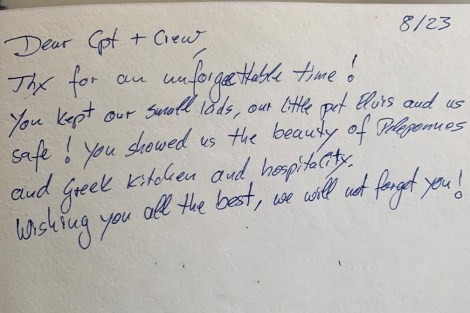 8/23
Dear Cpt + Crew,
Thx for an unforgettable time!
You kept our small kids, our little pet Elvis and us
safe! You showed us the beauty of Peloponnes
and Greek kitchen and hospitality.
Wishing you all the best, we will not forget you!